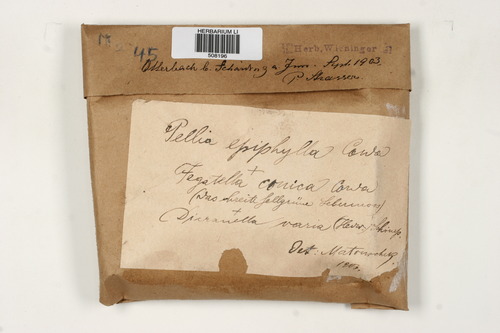 HERBARIUM LI
508196
45
Herb. Wieninger
Otterbach b. Schärding a Inn. Sept. 1903.
P. Strasser
Pellia epiphylla Corda
+
Fegatella conica Corda
(Das breite hellgrüne Lebermoos)
+
Dicranella varia (Hedw.) Schimp.
Det: Matouschek